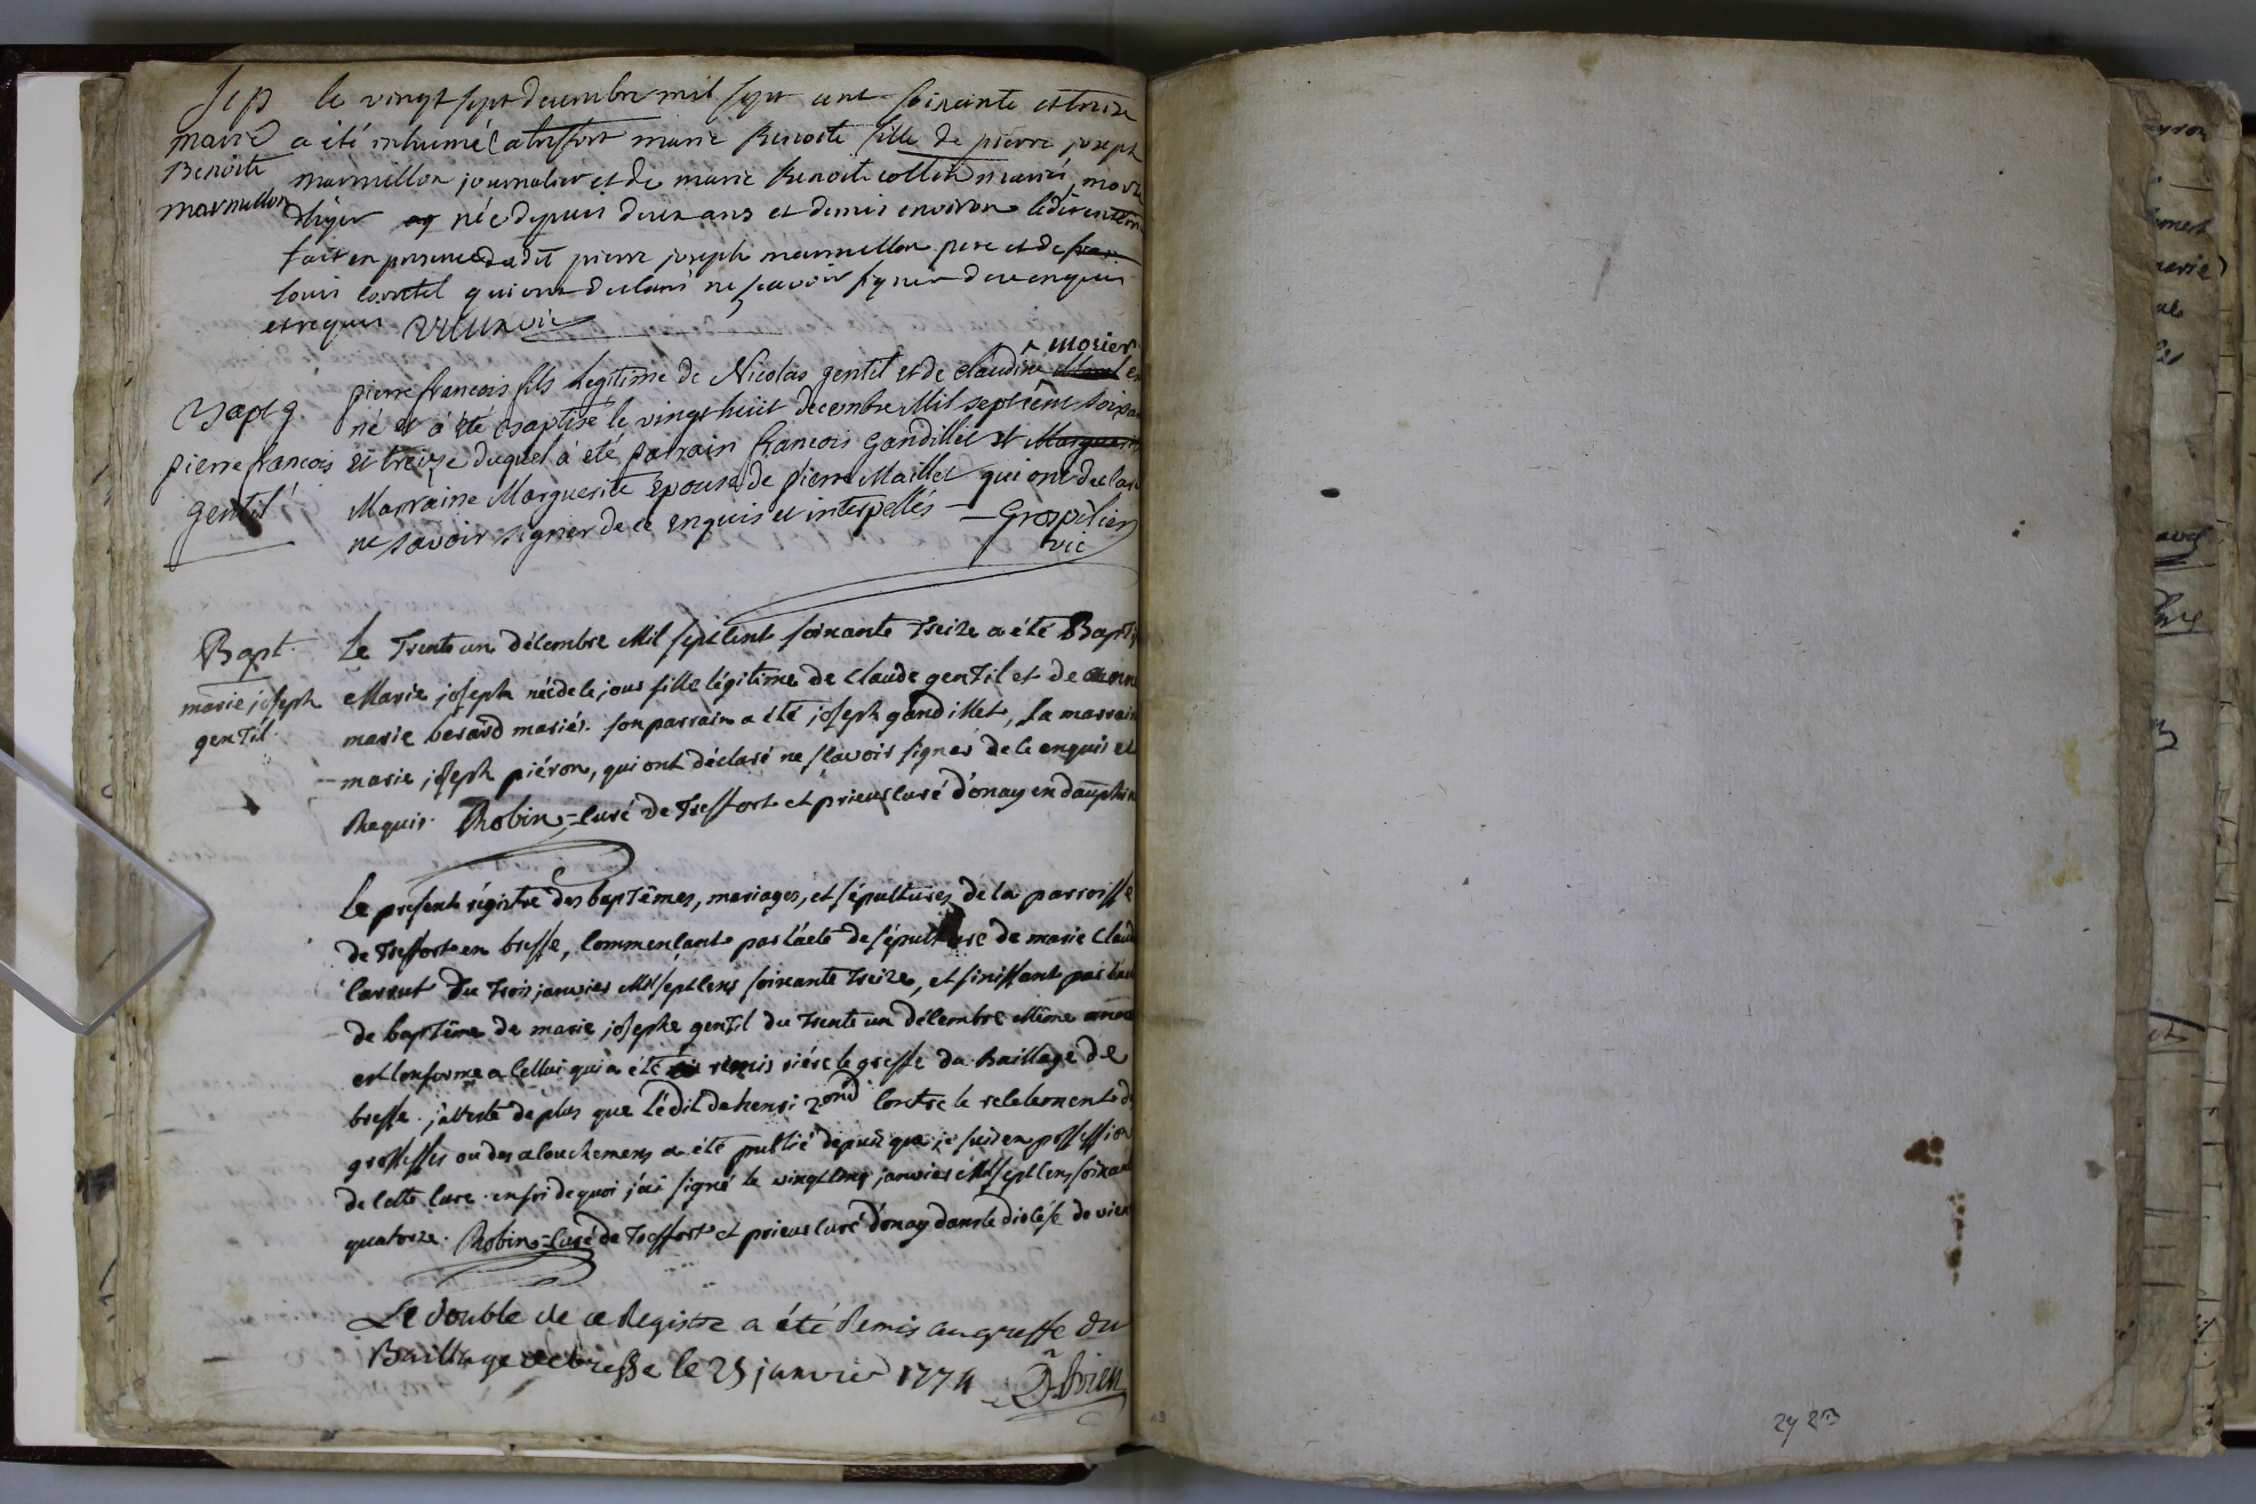 Sep
marie
Benoite
marmillon
le vingt sept decembre mil sept cent soixante et treize
a été inhumée a treffort marie Benoite fille de pierre joseph
marmillon journalier et de marie Benoite collet mariés, morte
d'hyer née depuis deux ans et demis environ
fait en presence dudit pierre joseph marmillon pere et de
louis qui ont declaré ne scavoir signer de ce enquis
et requis vic
Bapt
pierre francois
gentil
morier
pierre francois fils Legitime de Nicolas gentil et de claudine
né et à été baptisé le vingt huit decembre Mil sept cent soixan
et treize duquel à eté parrain francois Gandillet et Marguerite
Marraine Marguerite Epouse de pierre Maillet qui ont declaré
ne savoir signer de ce enquis et interpellés — Grospelier
vic
Bapt.
marie joseph
gentil.
Le Trente un décembre Mil sept cent soixante Treize a été Baptis
Marie joseph née de ce jour fille légitime de Claude genTil et de anne
marie berard mariés. son parrain a été joseph gandillet, la marrain
marie joseph piéron, qui ont déclaré ne sçavoir signer de ce enquis et
Requis. Robin = curé de Treffort et prieur curé d'onay en dauphin
Le present régistre des bapTêmes, mariages, et sépultures de la parroisse
de Treffort en bresse, commençant par l'acte de sépulture de marie Claud
du Trois janvier Mil sept cens soixante Treize, et finissant par l'act
de bapTême de marie josephe genTil du Trente un décembre Même année
est conforme a celluy qui a été remis riére le greffe du Baillage de
bresse. j'atteste de plus que l'édit de henri 2ond contre le recelement de
grossesses ou des acouchemens a été publié depuis que je suis en possession
de cette cure. en foi de quoi j'ai signé le vingt cinq janvier Mil sept cens soixant
quatorze. Robin = Curé de Treffort et prieur curé d'onay dans le diocése de vien
Le double de ce Registre a été Remis au greffe du
Baillage de bresse le 25 janvier 1774